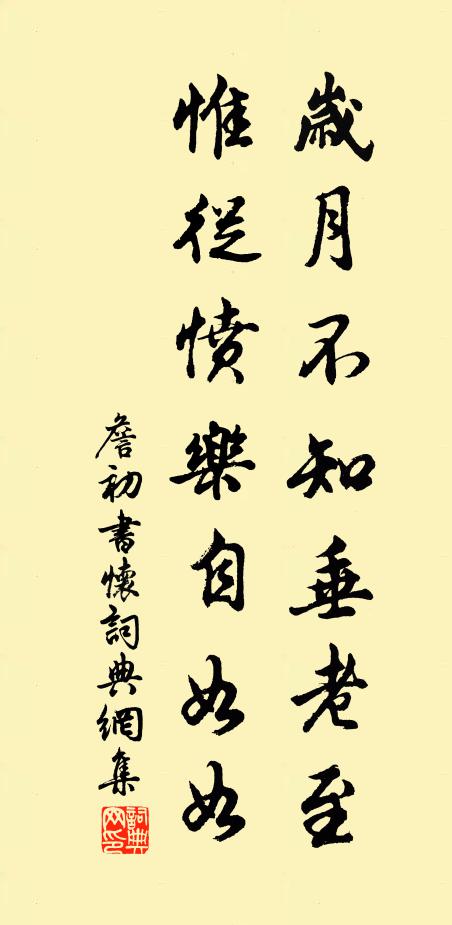 歲月不知垂老至
惟從憤樂自如如
詹初書懷詞典網集
詞典網印